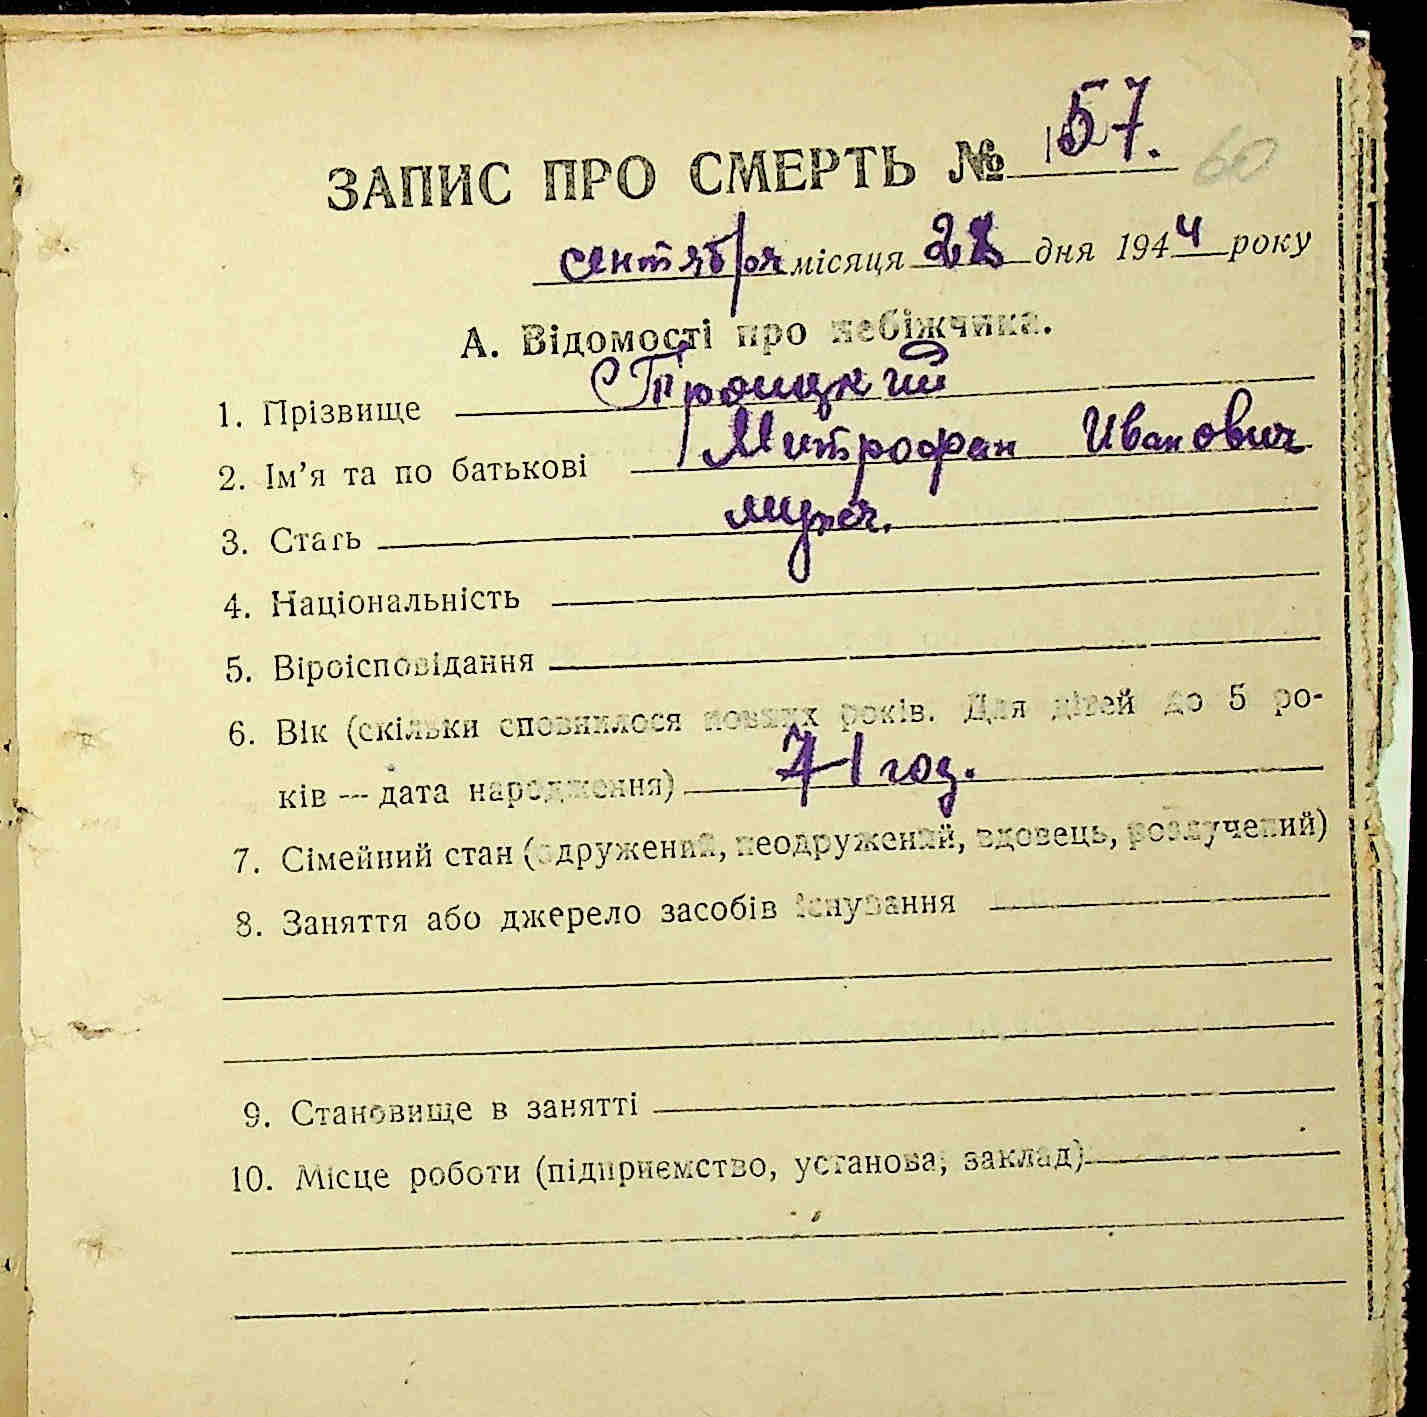 ЗАПИС ПРО СМЕРТЬ № 57.
60
сентября місяця 28 дня 1944 року
А. Відомості про небіжчика.
1. Прізвище Троицкий
2. Ім’я та по батькові Митрофан Иванович
3. Стать муж.
4. Національність
5. Віроісповідання
6. Вік (скільки сповнилося повних років. Для дітей до 5 ро-
ків — дата народження) 71 год.
7. Сімейний стан (одружений, неодружений, вдовець, розлучений)
8. Заняття або джерело засобів існування
9. Становище в занятті
10. Місце роботи (підприємство, установа, заклад)